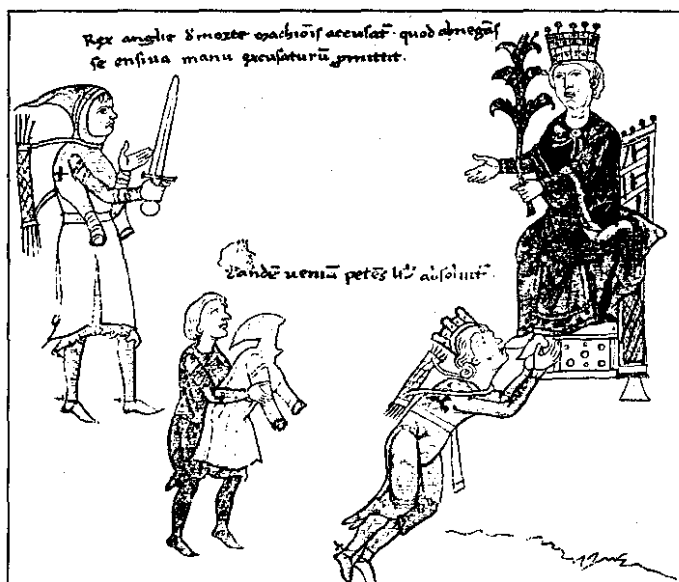 Rex anglie d̄ morte marchiōis accusat̄. quod abnegās
se ensiua manu excusaturū ꝓmittit.
Tandē ueniā petēs lib̄ absoluit̄.